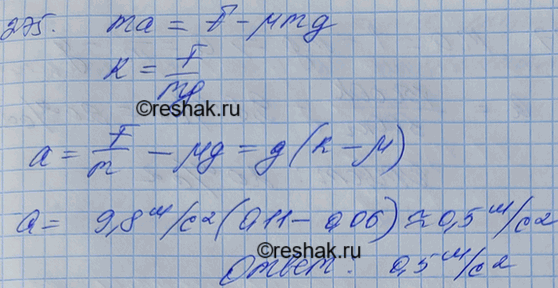 275. ma = F - μmg
k = F/mg
©reshak.ru
a = F/m - μg = g(k - μ)
a = 9,8 м/с2 (0,11 - 0,06) ≈ 0,5 м/с2
©reshak.ru
Ответ: 0,5 м/с2